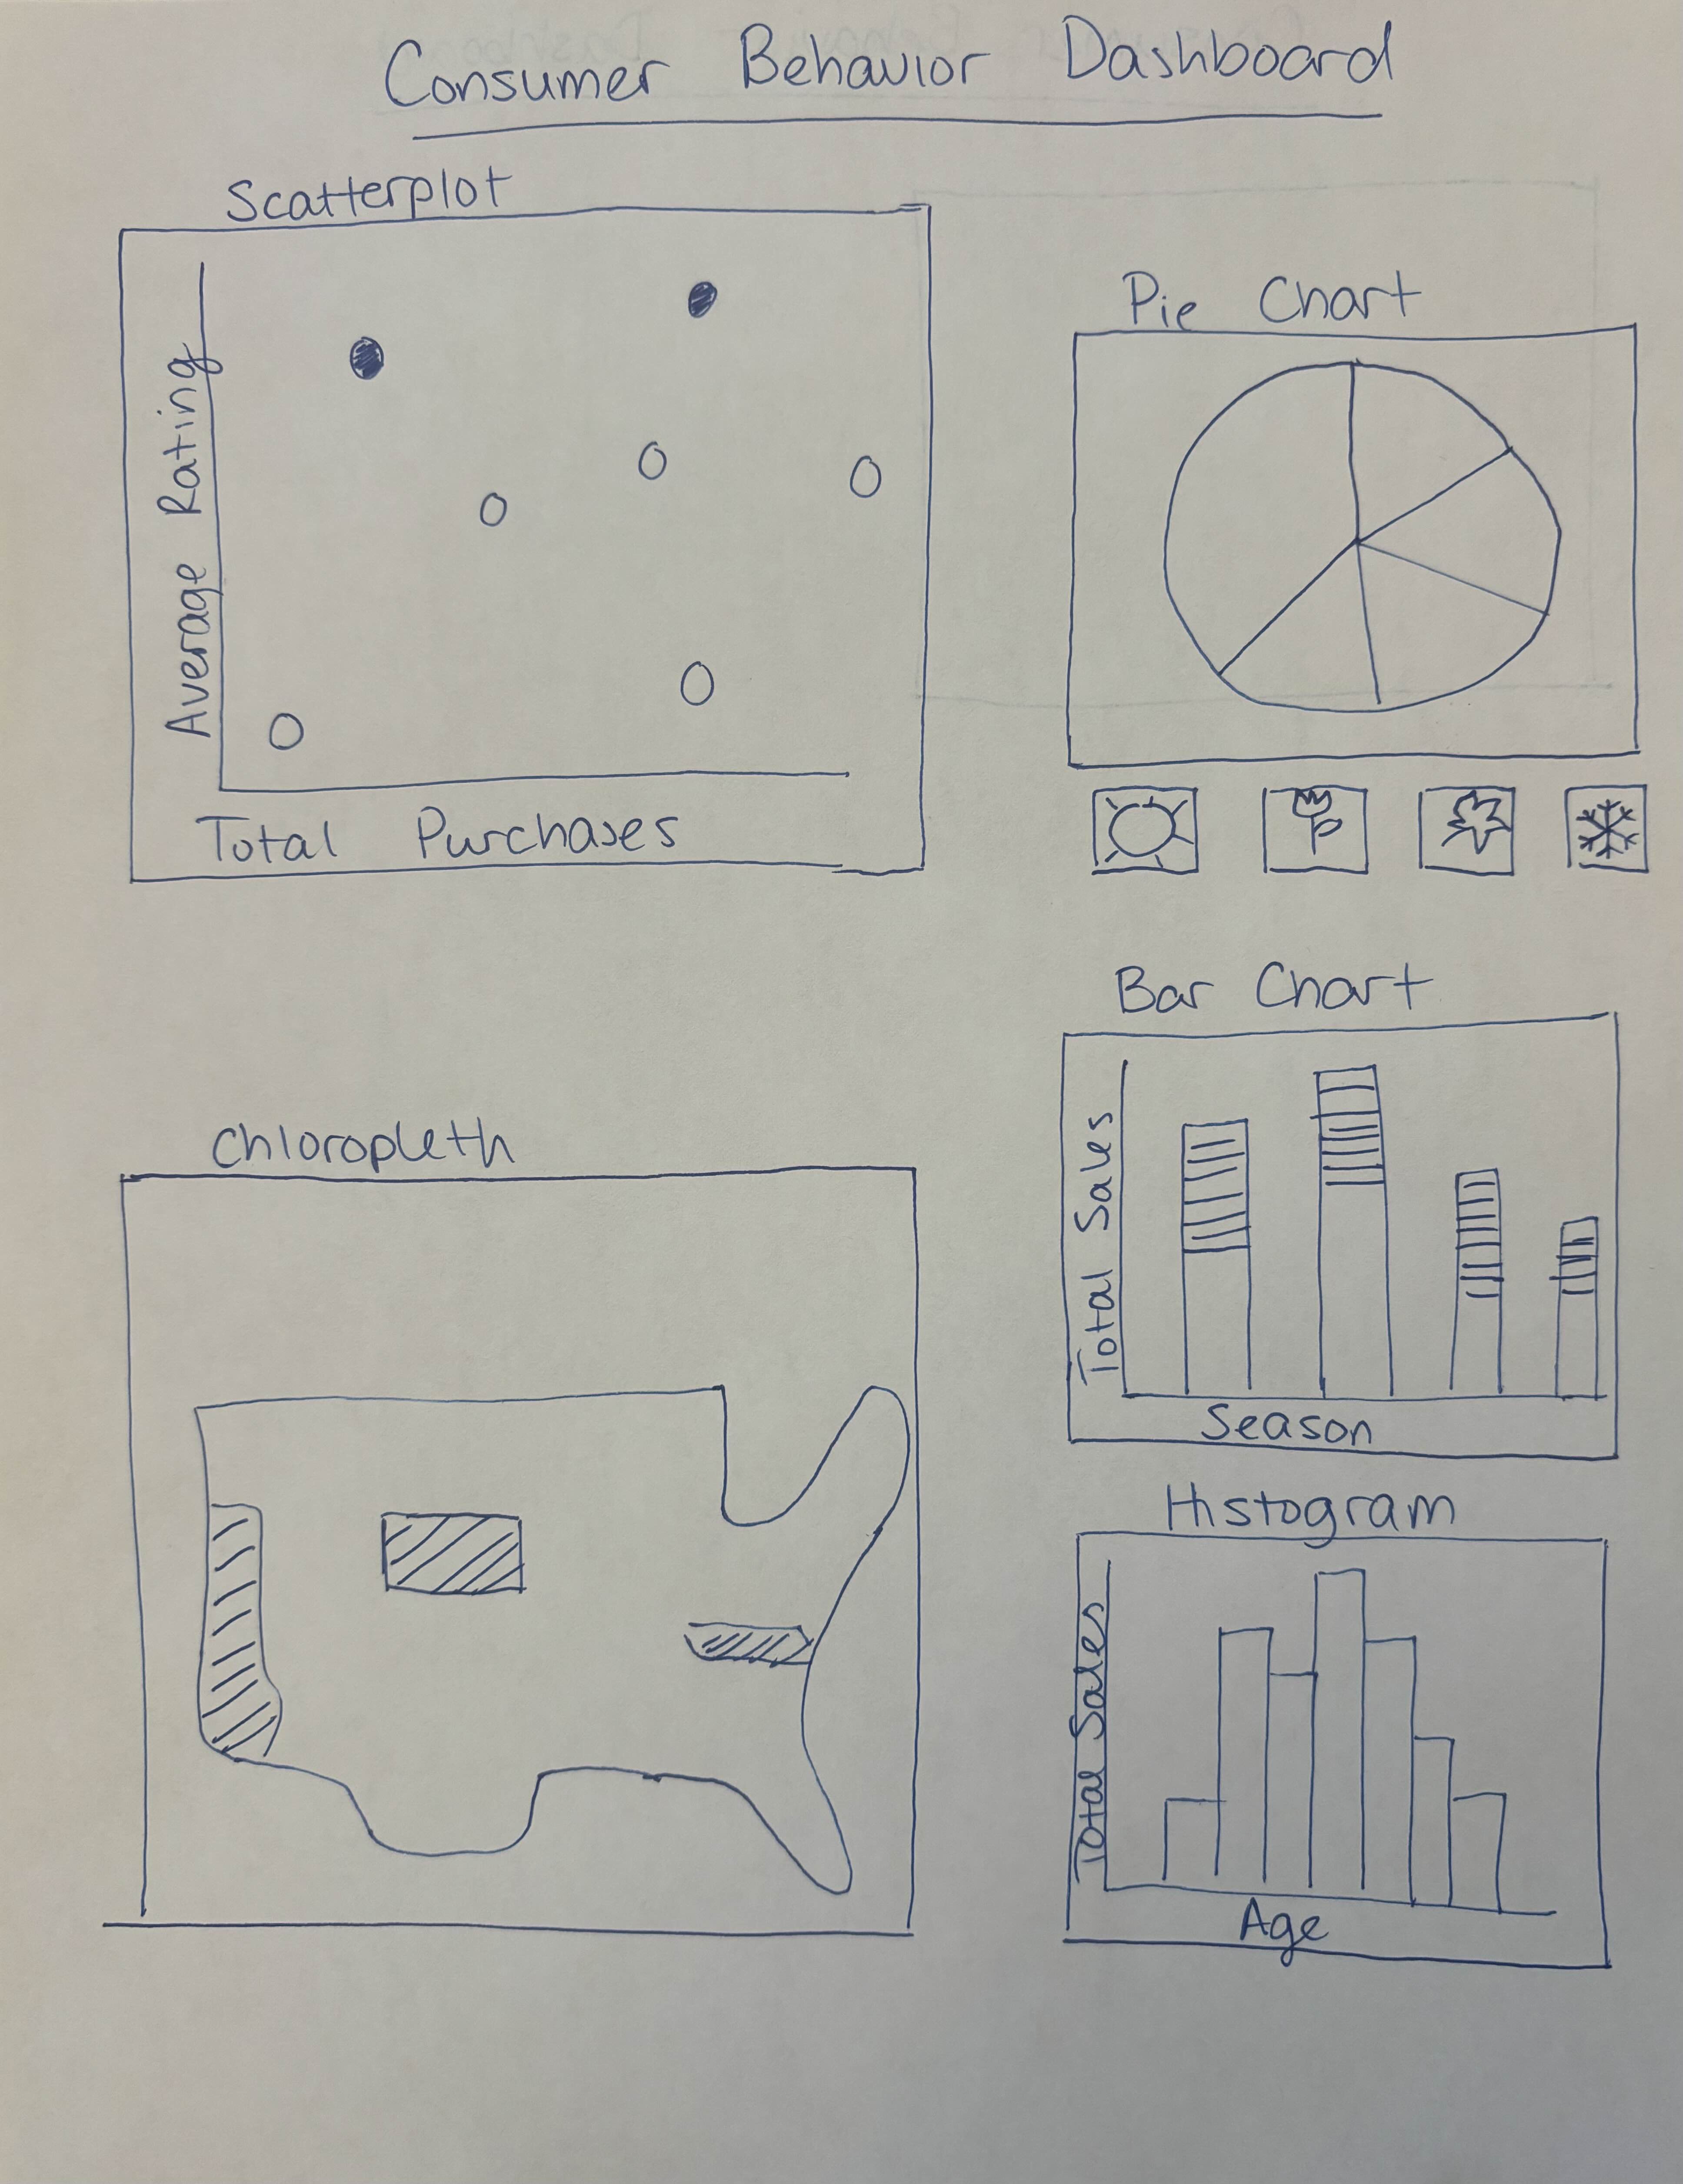 Consumer Behavior Dashboard
Scatterplot
Average Rating
Total Purchases
Pie Chart
Bar Chart
Total Sales
Season
Chloropleth
Histogram
Total Sales
Age